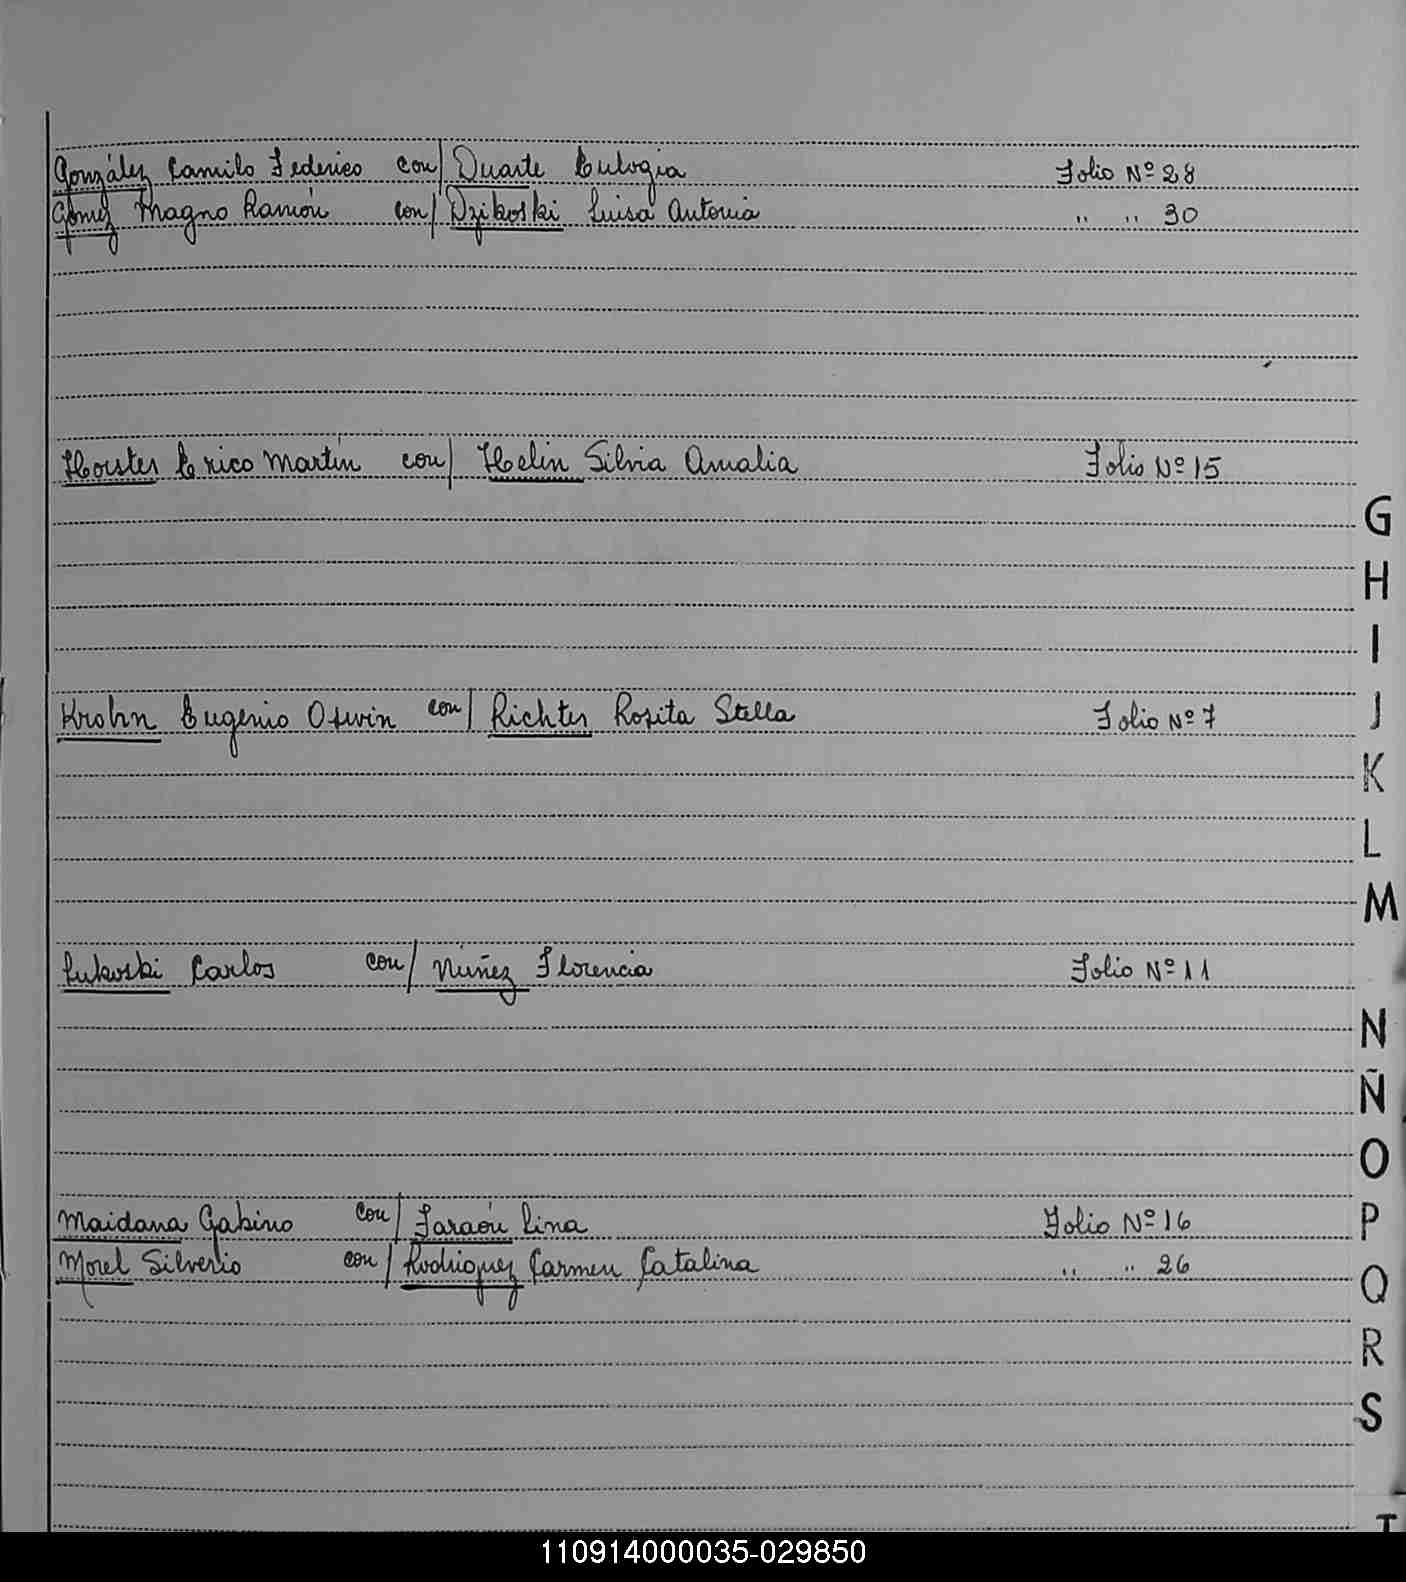 González Camilo Federico con/ Duarte Eulogia Folio Nº 28
Gómez Magno Ramón con/ Dzikoski Luisa Antonia " " 30
Horster Erico Martín con/ Helin Silvia Amalia Folio Nº 15
Krohn Eugenio Oswin con/ Richter Rosita Stella Folio Nº 7
Lukoski Carlos con/ Núñez Florencia Folio Nº 11
Maidana Gabino con/ Faraón Lina Folio Nº 16
Morel Silverio con/ Rodriguez Carmen Catalina " " 26
G
H
I
J
K
L
M
N
Ñ
O
P
Q
R
S
T
110914000035-029850